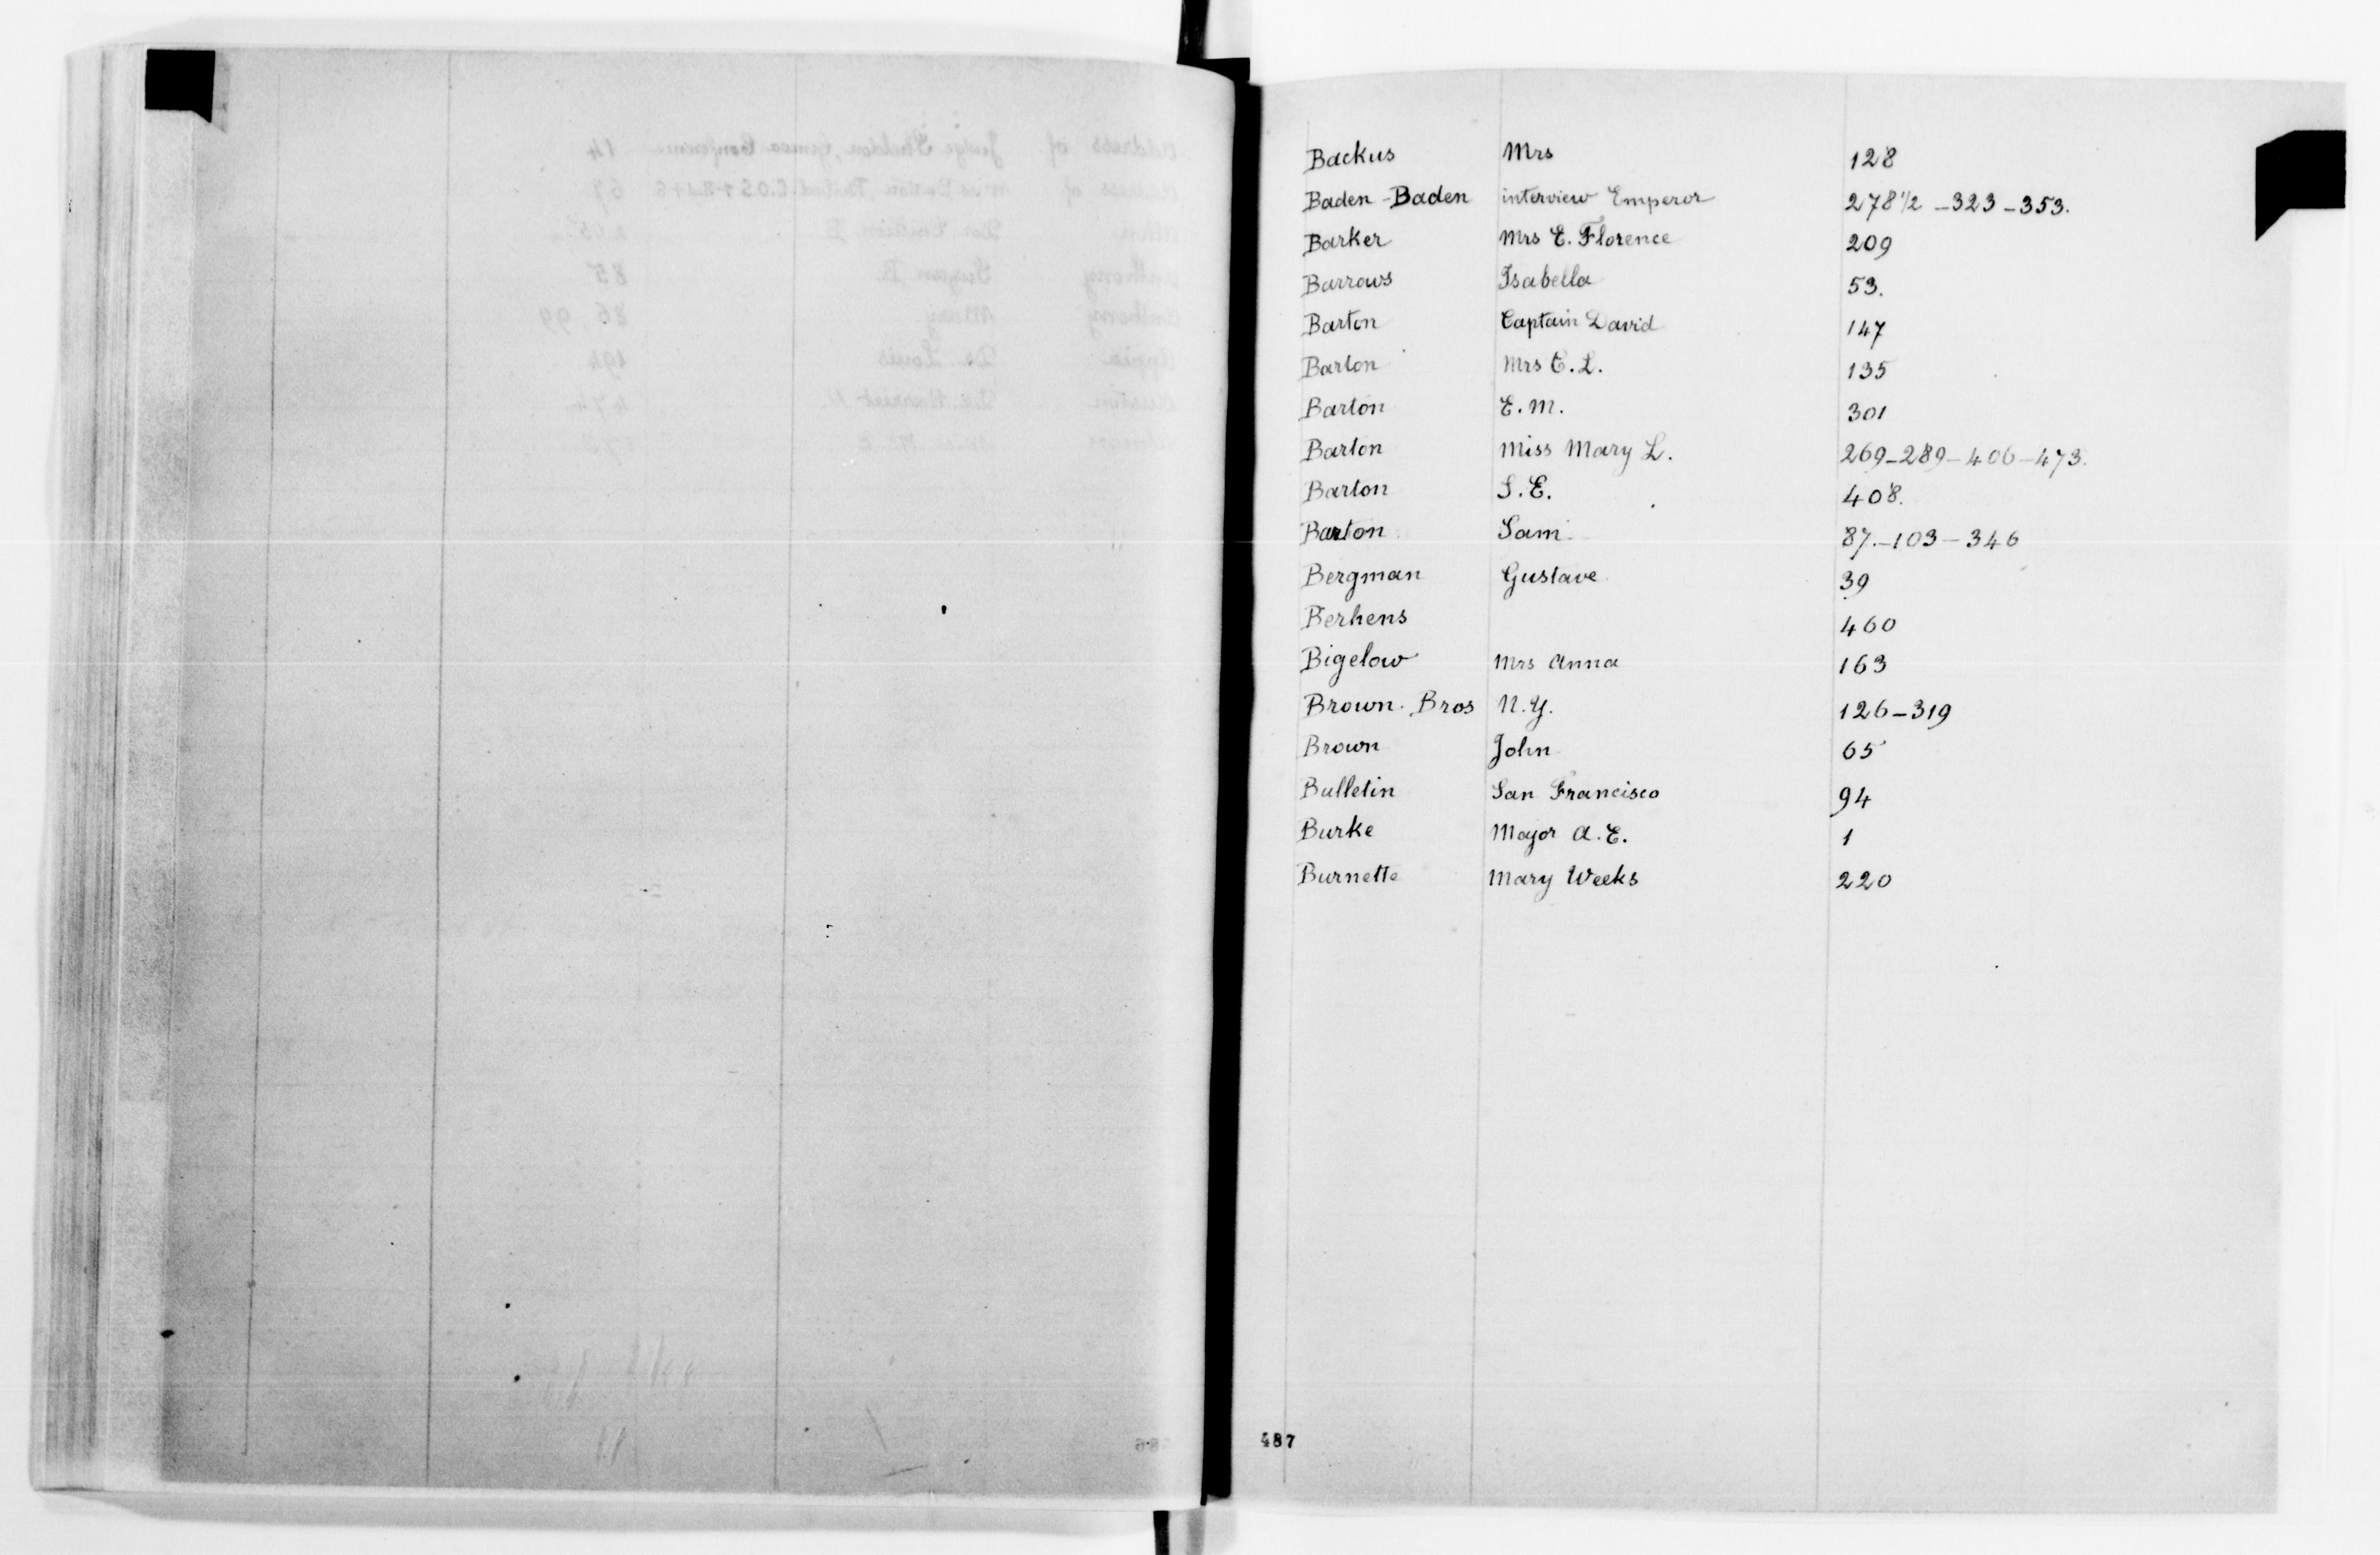 Backus Mrs 128
Baden-Baden interview Emperor 278 1/2 - 323 - 353.
Barker Mrs E. Florence 209
Barrows Isabella 53.
Barton Captain David 147
Barton Mrs C. L. 135
Barton E. M. 301
Barton Miss Mary L. 269 - 289 - 406 - 473.
Barton S. E. 408.
Barton Sam 87. - 103 - 346
Bergman Gustave 39
Berhens 460
Bigelow Mrs Anna 163
Brown. Bros N. Y. 126 - 319
Brown John 65
Bulletin San Francisco 94
Burke Major A. E. 1
Burnette Mary Weeks 220
487